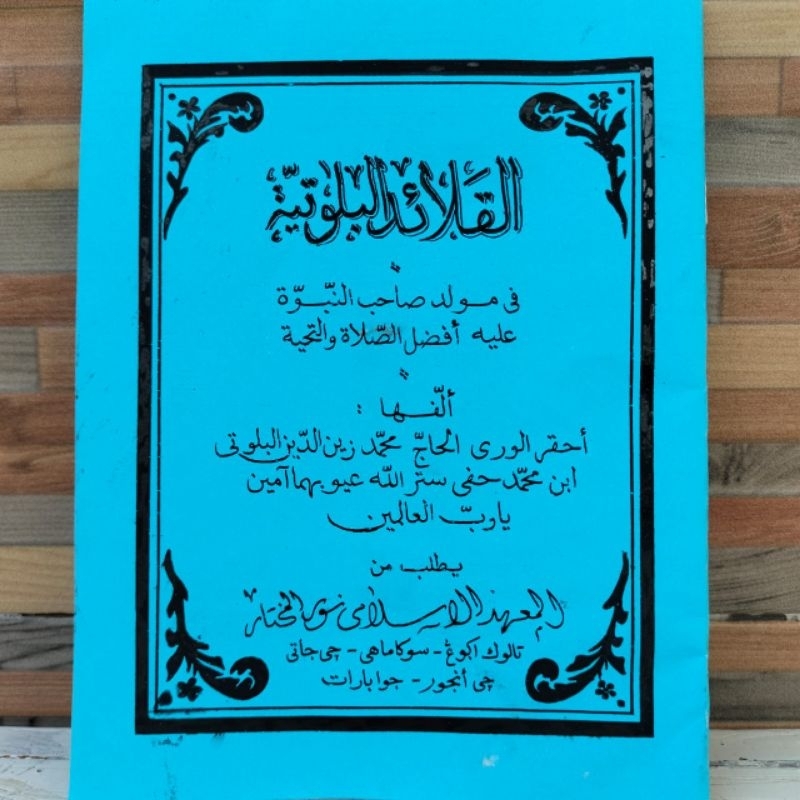 القلائد البلوتية
فى مولد صاحب النبّوّة
عليه أفضل الصّلاة والتحية
ألّفها :
أحقر الورى الحاجّ محمّد زين الدّين البلوتى
ابن محمّد حفى ستر الله عيوبهما آمين
ياربّ العالمين
يطلب من
المعهد الإسلامى نور المختار
تالوك اكوڠ - سوكاماهى - چى جاتى
چى أنجور - جوا بارات